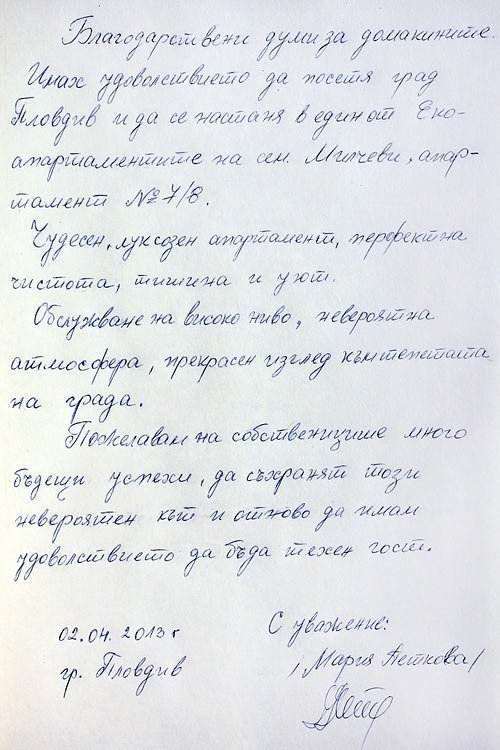 Благодарствени думи за домакините.
Имах удоволствието да посетя град
Пловдив и да се настаня в един от Еко-
апартаментите на сем. Милчеви, апар-
тамент №7/8.
Чудесен, луксозен апартамент, перфектна
чистота, тишина и уют.
Обслужване на високо ниво, невероятна
атмосфера, прекрасен изглед към тепетата
на града.
Пожелавам на собствениците много
бъдещи успехи, да съхранят този
невероятен кът и отново да имам
удоволствието да бъда техен гост.
02.04.2013 г
гр. Пловдив
С уважение:
/Мария Петкова/